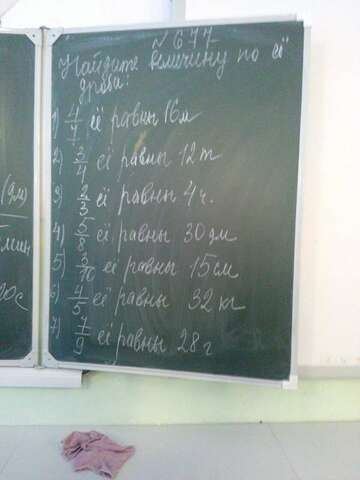 № 677
Найдите величину по её
дроби:
1) 4/7 её равны 16 м
2) 3/4 её равны 12 т
3) 2/3 её равны 4 ч.
4) 5/8 её равны 30 дм
5) 3/10 её равны 15 см
6) 4/5 её равны 32 кг
7) 7/9 её равны 28 г